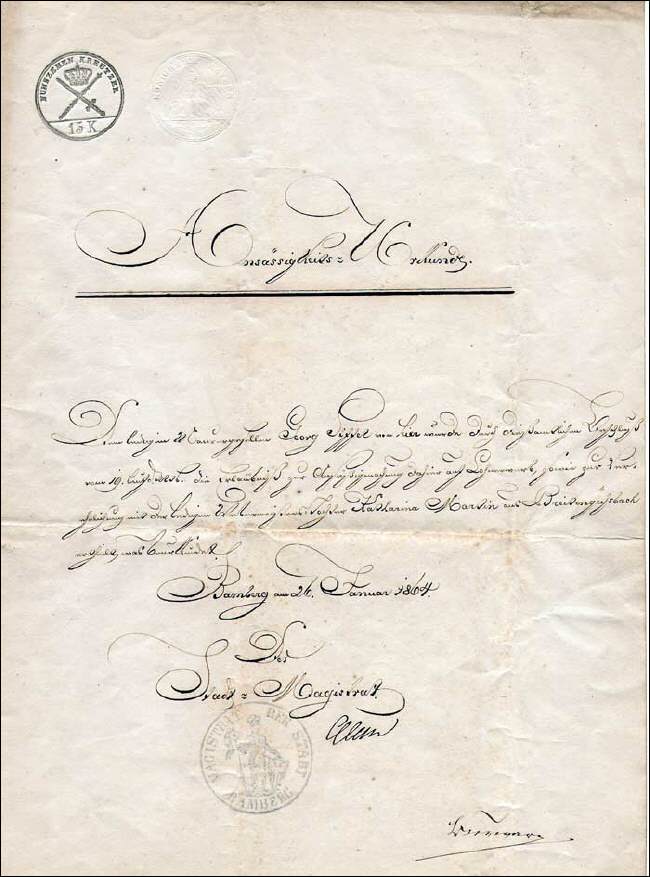 FÜNFZEHEN KREUTZER
15 K
Ansässigkeits=Urkunde.
Dem ledigen Maurergesellen Georg von hier wurde durch Beschluß
vom 19. die Erlaubniß zur Ansässigmachung dahier auf Lohnerwerb, sowie zur Ver
ehelichung mit der ledigen Tochter Katharina Martin aus Breitengüßbach
ertheilt, was beurkundet.
Bamberg am 26. Januar 1864.
Der
Stadt=Magistrat.
MAGISTRAT DER STADT
BAMBERG